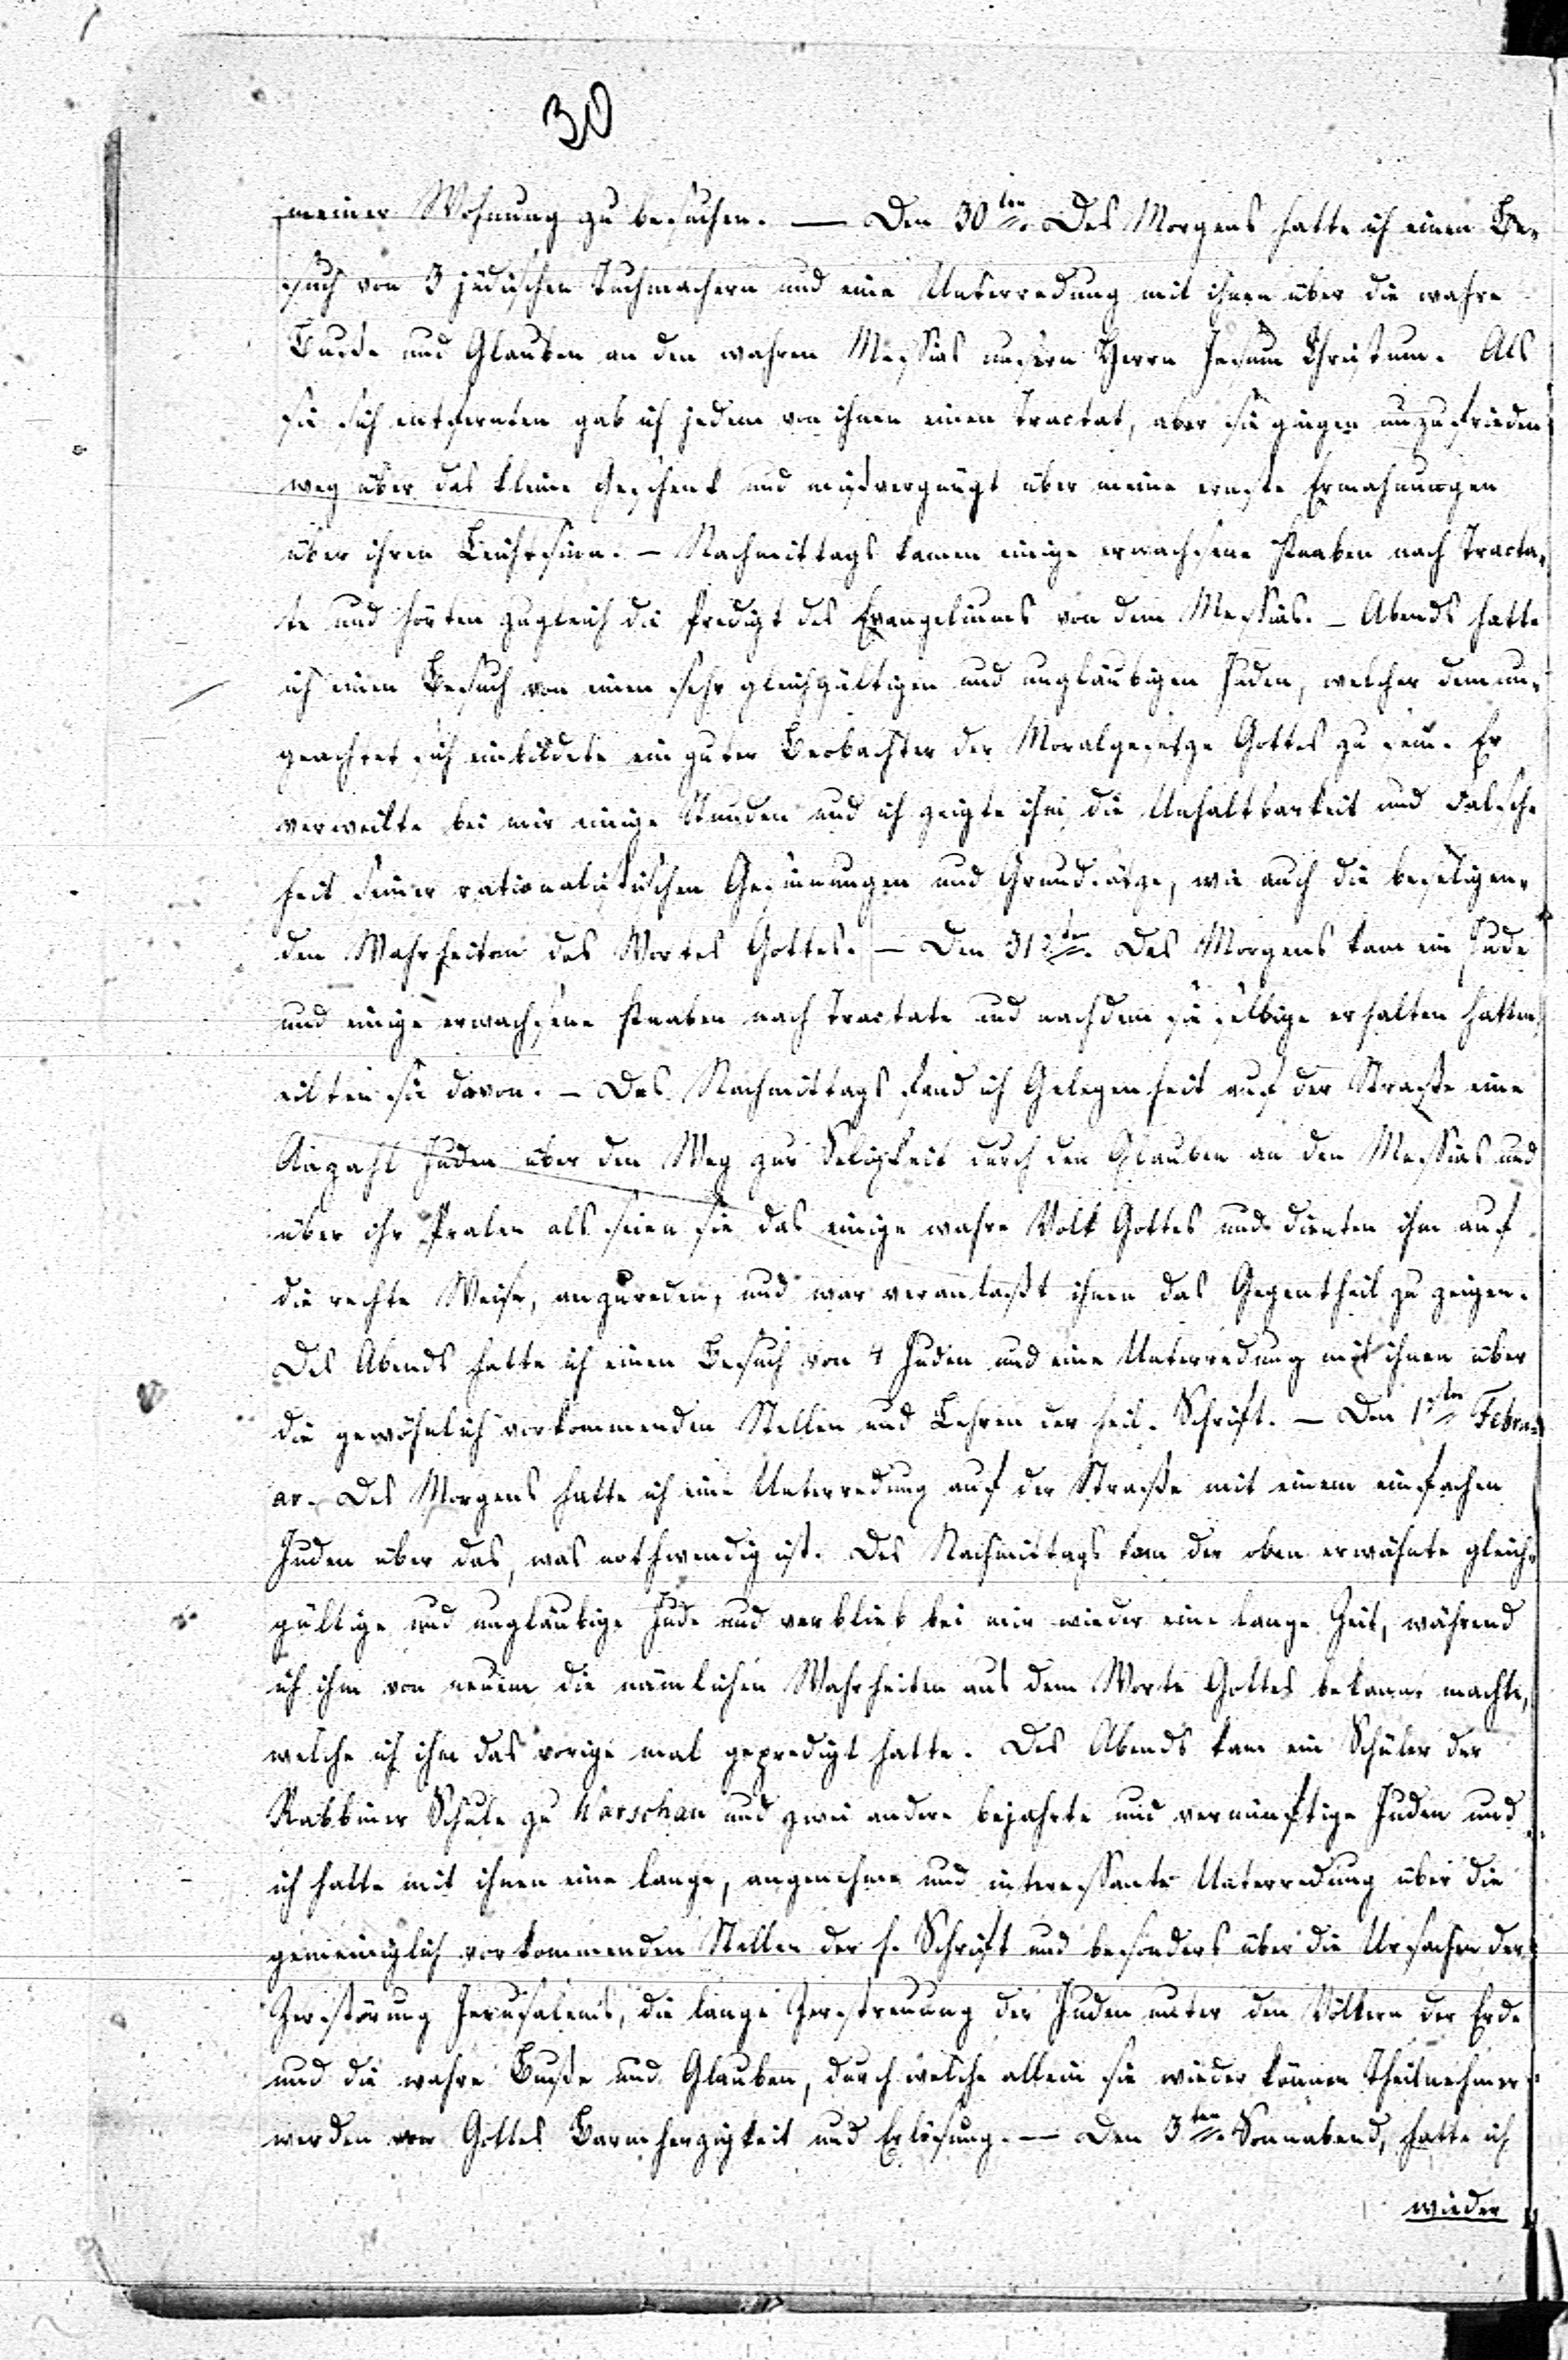 30
meiner Wohnung zu besuchen. — Den 30ten. Des Morgens hatte ich einen Be-
such von 3 jüdischen Tuchmachern und eine Unterredung mit ihnen über die wahre
Buße und Glauben an den wahren Messias unsern Herrn Jesum Christum. Als
sie sich entfernten gab ich jedem von ihnen einen Tractat, aber sie gingen unzufrieden
weg über das kleine Geschenk und mißvergnügt über meine ernste Ermahnungen
über ihren Leichtsinn. – Nachmittags kamen einige erwachsene Knaben nach Tracta-
te und hörten zugleich die Predigt des Evangeliums von dem Messias. – Abends hatte
ich einen Besuch von einem sehr gleichgültigen und ungläubigen Juden, welcher demun-
geachtet sich einbildete ein guter Beobachter der Moralgesetze Gottes zu sein. Er
verweilte bei mir einige Stunden und ich zeigte ihm die Unhaltbarkeit und Falsch-
heit seiner rationalistischen Gesinnungen und Grundsätze, wie auch die beseligen-
den Wahrheiten des Wortes Gottes. – Den 31sten. Des Morgens kam ein Jude
und einige erwachsene Knaben nach Tractate und nachdem sie selbige erhalten hatten
eilten sie davon. – Des Nachmittags fand ich Gelegenheit auf der Straße eine
Anzahl Juden über den Weg zur Seligkeit durch den Glauben an den Messias und
über ihr Pralen als seien sie das einige wahre Volk Gottes und dienten ihm auf
die rechte Weise, anzureden, und war veranlaßt ihnen das Gegentheil zu zeigen.
Des Abends hatte ich einen Besuch von 4 Juden und eine Unterredung mit ihnen über
die gewöhnlich vorkommenden Stellen und Lehren der heil. Schrift. – Den 1sten Febru-
ar. Des Morgens hatte ich eine Unterredung auf der Straße mit einem einfachen
Juden über das, was nothwendig ist. Des Nachmittags kam der oben erwähnte gleich-
gültige und ungläubige Jude und verblieb bei mir wieder eine lange Zeit, während
ich ihm von neuem die nämlichen Wahrheiten aus dem Worte Gottes bekannt machte,
welche ich ihm das vorige mal gepredigt hatte. Des Abends kam ein Schüler der
Rabbiner Schule zu Warschau und zwei andere bejahrte und vernünftige Juden und
ich hatte mit ihnen eine lange, angenehme und interessante Unterredung über die
gemeiniglich vorkommenden Stellen der h. Schrift und besonders über die Ursachen der
Zerstörung Jerusalems, die lange Zerstreuung der Juden unter den Völkern der Erde
und die wahre Buße und Glauben, durch welche allein sie wieder können Theilnehmer
werden von Gottes Barmherzigkeit und Erlösung. — Den 3ten. Sonnabend, hatte ich
wieder